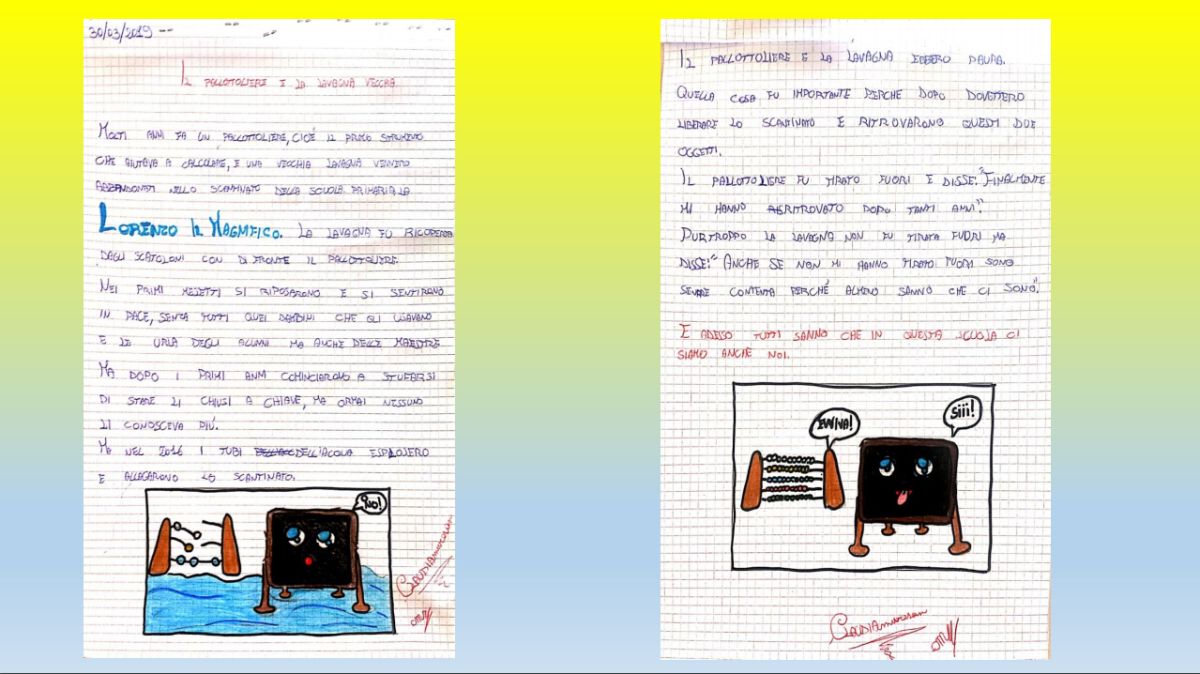 30/03/2019
IL PALLOTTOLIERE E LA LAVAGNA VECCHIA
MOLTI ANNI FA UN PALLOTTOLIERE, CIOÈ IL PRIMO STRUMENTO
CHE AIUTAVA A CALCOLARE, E UNA VECCHIA LAVAGNA VENNERO
ABBANDONATI NELLO SCANTINATO DELLA SCUOLA PRIMARIA LA
LORENZO IL MAGNIFICO. LA LAVAGNA FU RICOPERTA
DAGLI SCATOLONI CON DI FRONTE IL PALLOTTOLIERE.
NEI PRIMI MESETTI SI RIPOSARONO E SI SENTIRONO
IN PACE, SENZA TUTTI QUEI BAMBINI CHE GLI USAVANO
E LE URLA DEGLI ALUNNI MA ANCHE DELLE MAESTRE
MA DOPO I PRIMI ANNI COMINCIARONO A STUFARSI
DI STARE LI CHIUSI A CHIAVE, MA ORMAI NESSUNO
LI CONOSCEVA PIÚ.
MA NEL 2016 I TUBI DELL'ACQUA ESPLOSERO
E ALLAGARONO LO SCANTINATO.
NO!
CLAUDIA
IL PALLOTTOLIERE E LA LAVAGNA EBBERO PAURA.
QUELLA COSA FU IMPORTANTE PERCHE DOPO DOVETTERO
LIBERARE LO SCANTINATO E RITROVARONO QUESTI DUE
OGGETTI.
IL PALLOTTOLIERE FU TIRATO FUORI E DISSE: "FINALMENTE
MI HANNO RITROVATO DOPO TANTI ANNI"
PURTROPPO LA LAVAGNA NON FU TIRATA FUORI MA
DISSE: "ANCHE SE NON MI HANNO TIRATO FUORI SONO
SEMPRE CONTENTA PERCHÉ ALMENO SANNO CHE CI SONO".
E ADESSO TUTTI SANNO CHE IN QUESTA SCUOLA CI
SIAMO ANCHE NOI.
EVVIVA!
Siii!
CLAUDIA